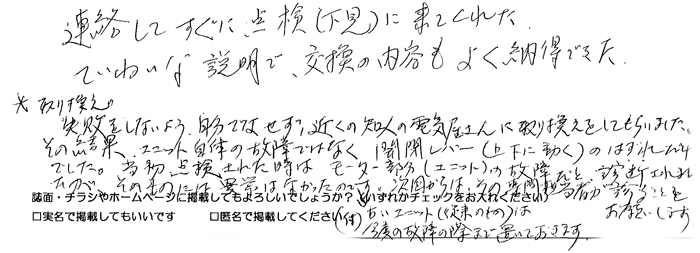 連絡してすぐに点検(下見)に来てくれた.
ていねいな説明で、交換の内容もよく納得できた.
* 取り換えの
失敗をしないよう、自分でなせず、近くの知人の電気屋さんに取り換えをしてもらいました。
その結果、ユニット自体の故障ではなく、開閉レバー(上下に動く)のはずれだけ
でした。当初点検された時はモーター部分(ユニット)の故障だと診断されました
が、そのものには異常はなかったのです。次回からは、その専門担当者が診ることを
お願いします
誌面・チラシやホームページに掲載してもよろしいでしょうか?(いずれかチェックをお入れください)
□実名で掲載してもいいです □匿名で掲載してください
(付) 古いユニット(従来のもの)は
今後の故障の際まで置いておきます.